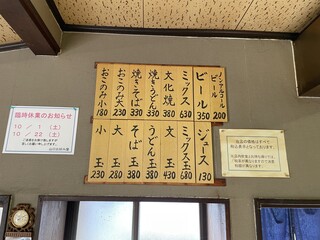 ノンアルコール
ビール 200
ビール 350
ミックス 630
文化焼 380
焼うどん 330
焼きそば 330
おこのみ大 230
おこのみ小 180
ジュース 130
ミックス玉 680
文玉 430
うどん玉 380
そば玉 380
大玉 280
小玉 230
臨時休業のお知らせ
10 / 1 (土)
10 / 22 (土)